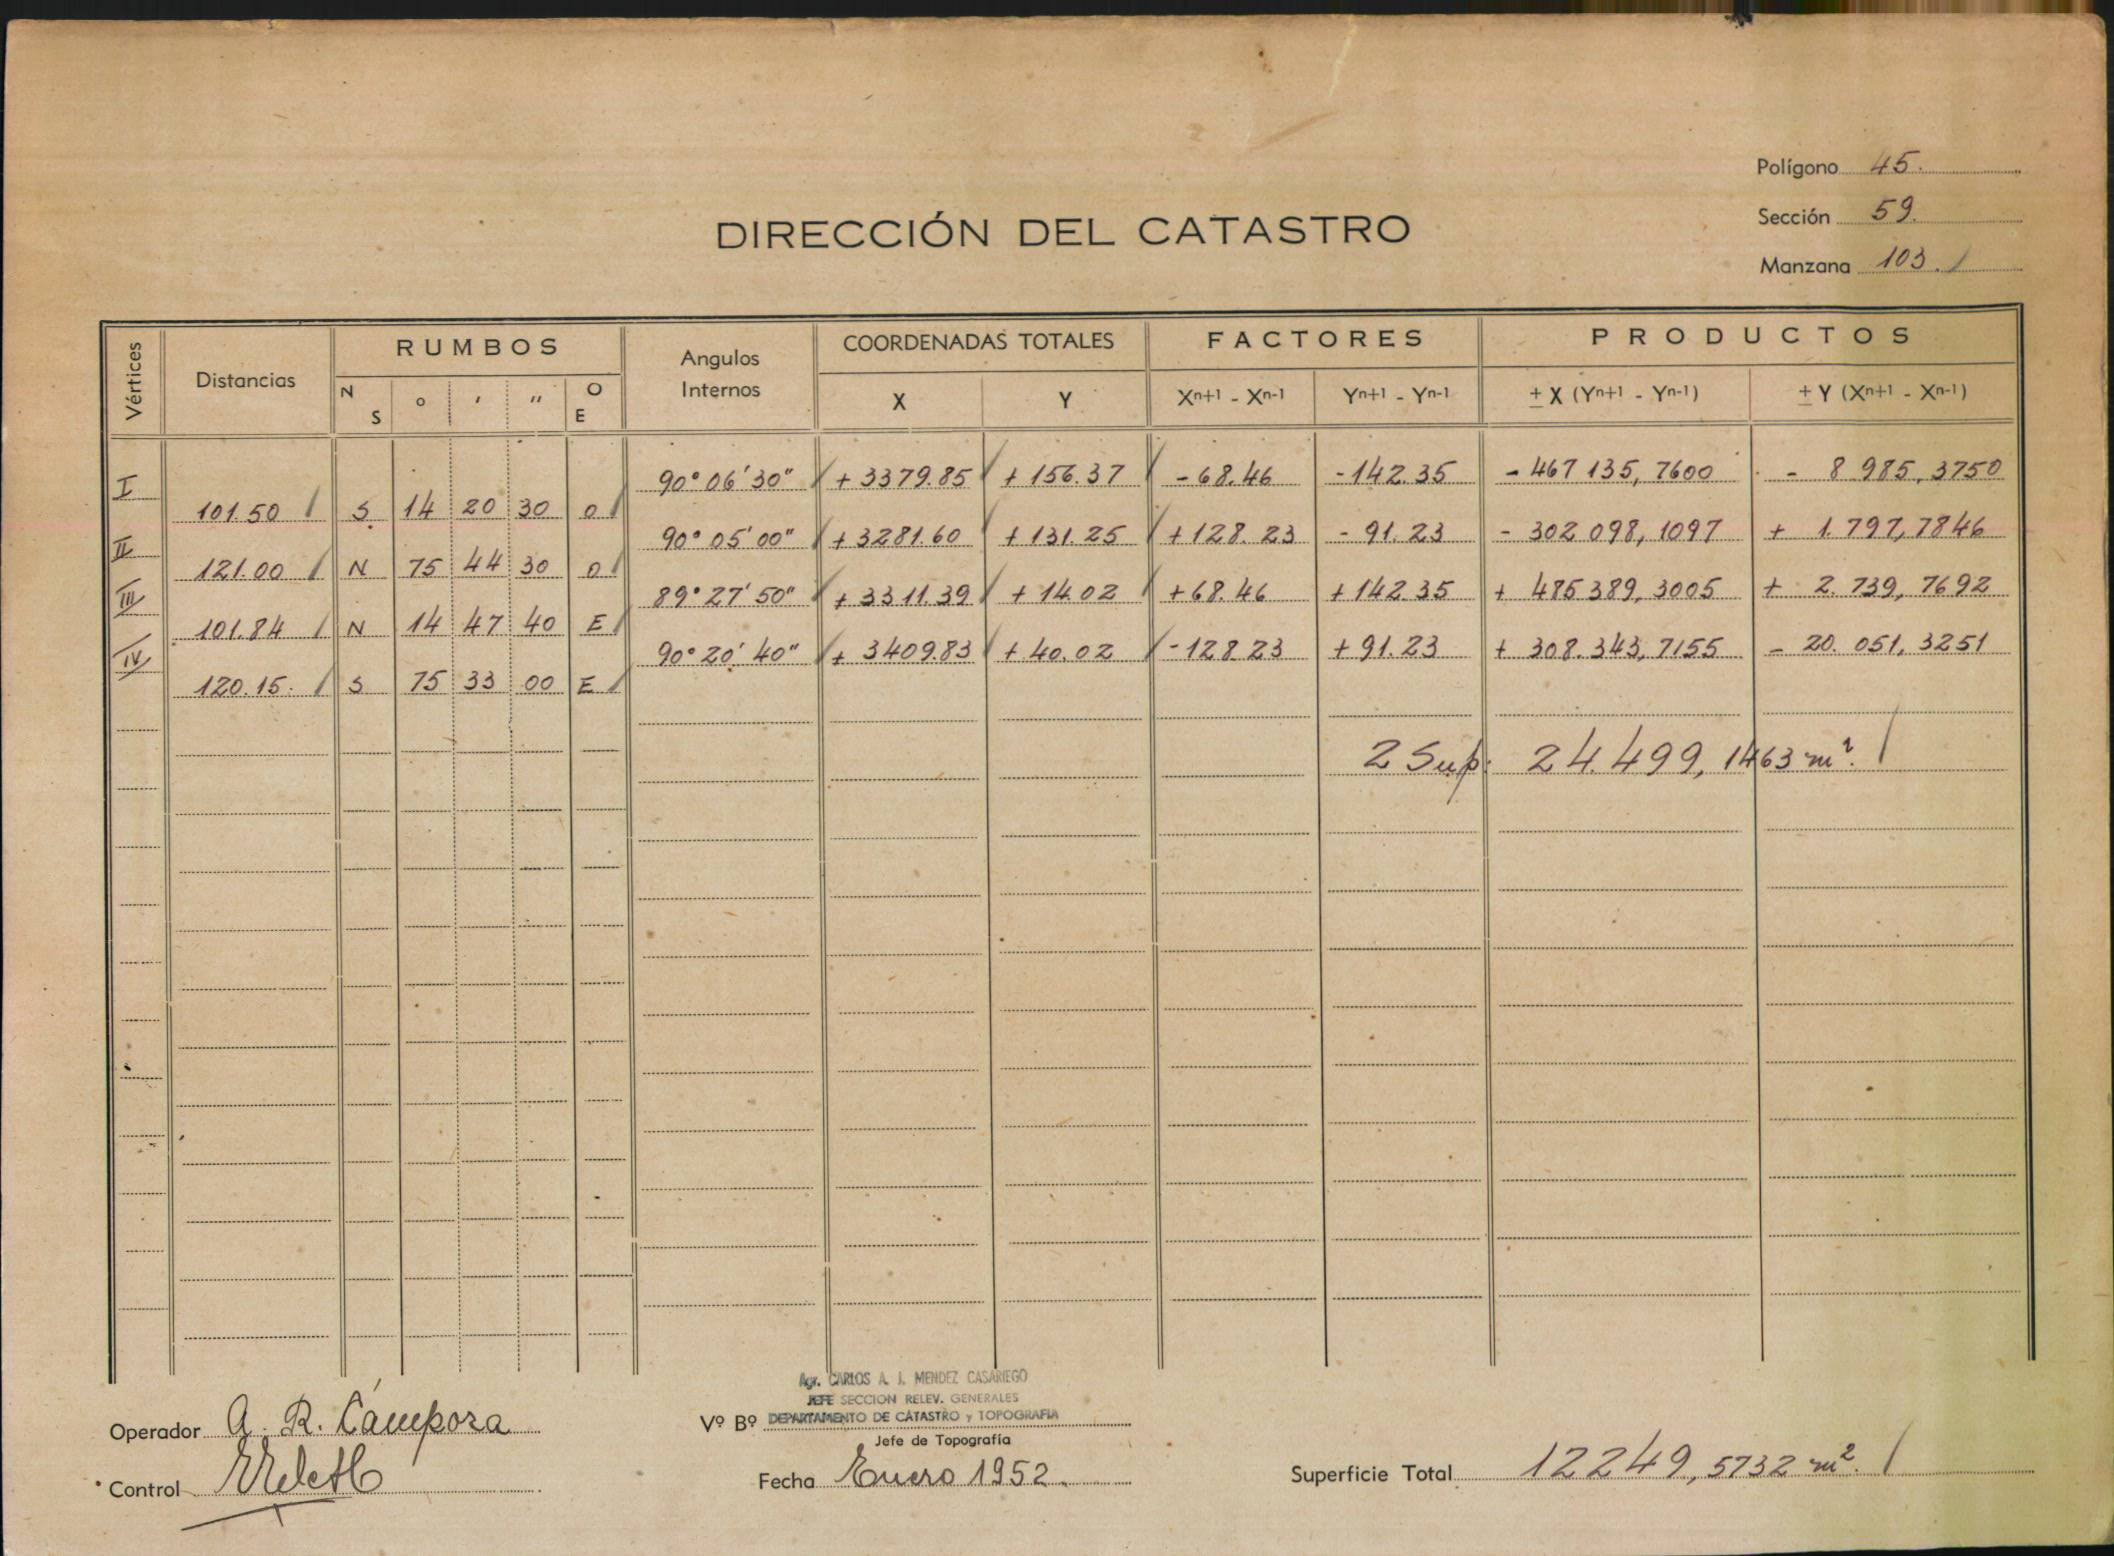 Polígono 45.
Sección 59.
Manzana 103.
DIRECCIÓN DEL CATASTRO
Vértices Distancias RUMBOS Angulos Internos COORDENADAS TOTALES FACTORES PRODUCTOS
N S ° ' " O E X Y Xn+1 - Xn-1 Yn+1 - Yn-1 ± X (Yn+1 - Yn-1) ± Y (Xn+1 - Xn-1)
I 90° 06' 30" + 3379.85 + 156.37 - 68.46 - 142.35 - 467 135, 7600 - 8 985, 3750
101.50 S 14 20 30 O
II 90° 05' 00" + 3281.60 + 131.25 + 128.23 - 91.23 - 302 098, 1097 + 1.797, 7846
121.00 N 75 44 30 O
III 89° 27' 50" + 3311.39 + 14.02 + 68.46 + 142.35 + 485 389, 3005 + 2.739, 7692
101.84 N 14 47 40 E
IV 90° 20' 40" + 3409.83 + 40.02 - 128.23 + 91.23 + 308.343, 7155 - 20. 051, 3251
120.15. S 75 33 00 E
2 Sup: 24.499, 1463 m².
Agr. CARLOS A. J. MENDEZ CASARIEGO
JEFE SECCION RELEV. GENERALES
DEPARTAMENTO DE CATASTRO y TOPOGRAFIA
Operador A. R. Cámpora Vº Bº
Jefe de Topografía
Control Fecha Enero 1952. Superficie Total 12249, 5732 m².